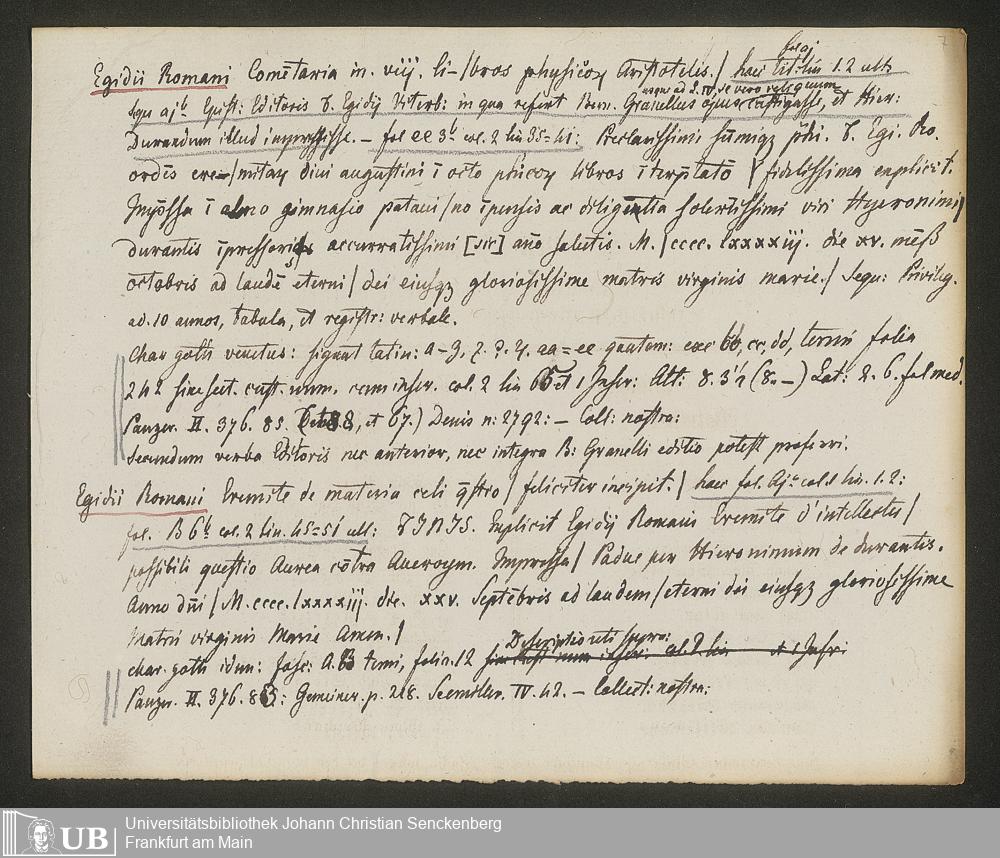 7
fol aj
Egidii Romani Comētaria in. viij. li-/bros physicoꝝ Aristotelis./ haec tit: lin 1.2 ult.
usque ad L. IV. se vero reliquum
sequ aj b Epist: Editoris F. Egidij Viterb: in qua refert Bern. Granellus opus castigasse, et Hier:
Durandum illud impressisse. – fol ee 3b col. 2 lin 35=41: Preclarissimi sūmiqꝫ phi. F. Egi. Ro.
ordīs ere-/mitaꝝ divi augustini ī octo phicoꝝ libros īterp̄tatō / fidelissima explicit.
Imp̄ssa ī almo gimnasio patavi/no īpensis ac diligentia solertissimi viri Hyeronimi/
durantis īpressoris accurratissimi [sic] año salutis. M./cccc. lxxxxiij. die xv. mēß
octobris ad laudē eterni / dei eiusqꝫ gloriosissime matris virginis marie./ Sequ: Privileg.
ad. 10 annos, tabula, et registr: verbale.
char goth venetus: signat latin: a–z, ꝫ. ?. ꝝ. aa=ee quatern: exc bb, cc, dd, terni folia
242 sine sect. cust. num. cum inscr. col. 2 lin 65 et 1 Inscr: Alt: 8. 3½ (8. –) Lat: 2. 6. fol med.
Panzer. II. 376. 85. et 67.) Denis n: 2792: – Coll: nostra:
Secundum verba Editoris nec anterior, nec integra B: Granelli editio potest proferri.
Egidii Romani Eremite de materia celi q̄stio / feliciter incipit. / haec fol. Aj a col. 1 lin. 1.2:
fol. B 6b col. 2 lin. 45=51 ult: FINIS. Explicit Egidij Romani Eremite d' intellectu /
possibili questio Aurea cōtra Averoym. Impressa / Padue per Hieronimum de durantis.
Anno dn̄i / M. cccc. lxxxxiij. die. xxv. Septēbris ad laudem / eterni dei eiusqꝫ gloriosissime
Matris virginis Marie Amen. /
Descriptio uti supra:
char. goth idem: fasc: A. B terni, folia. 12
Panzer. II. 376. 83: Gemeiner. p. 218. Seemiller. IV. 42. – Collect: nostra:
UB
Universitätsbibliothek Johann Christian Senckenberg
Frankfurt am Main